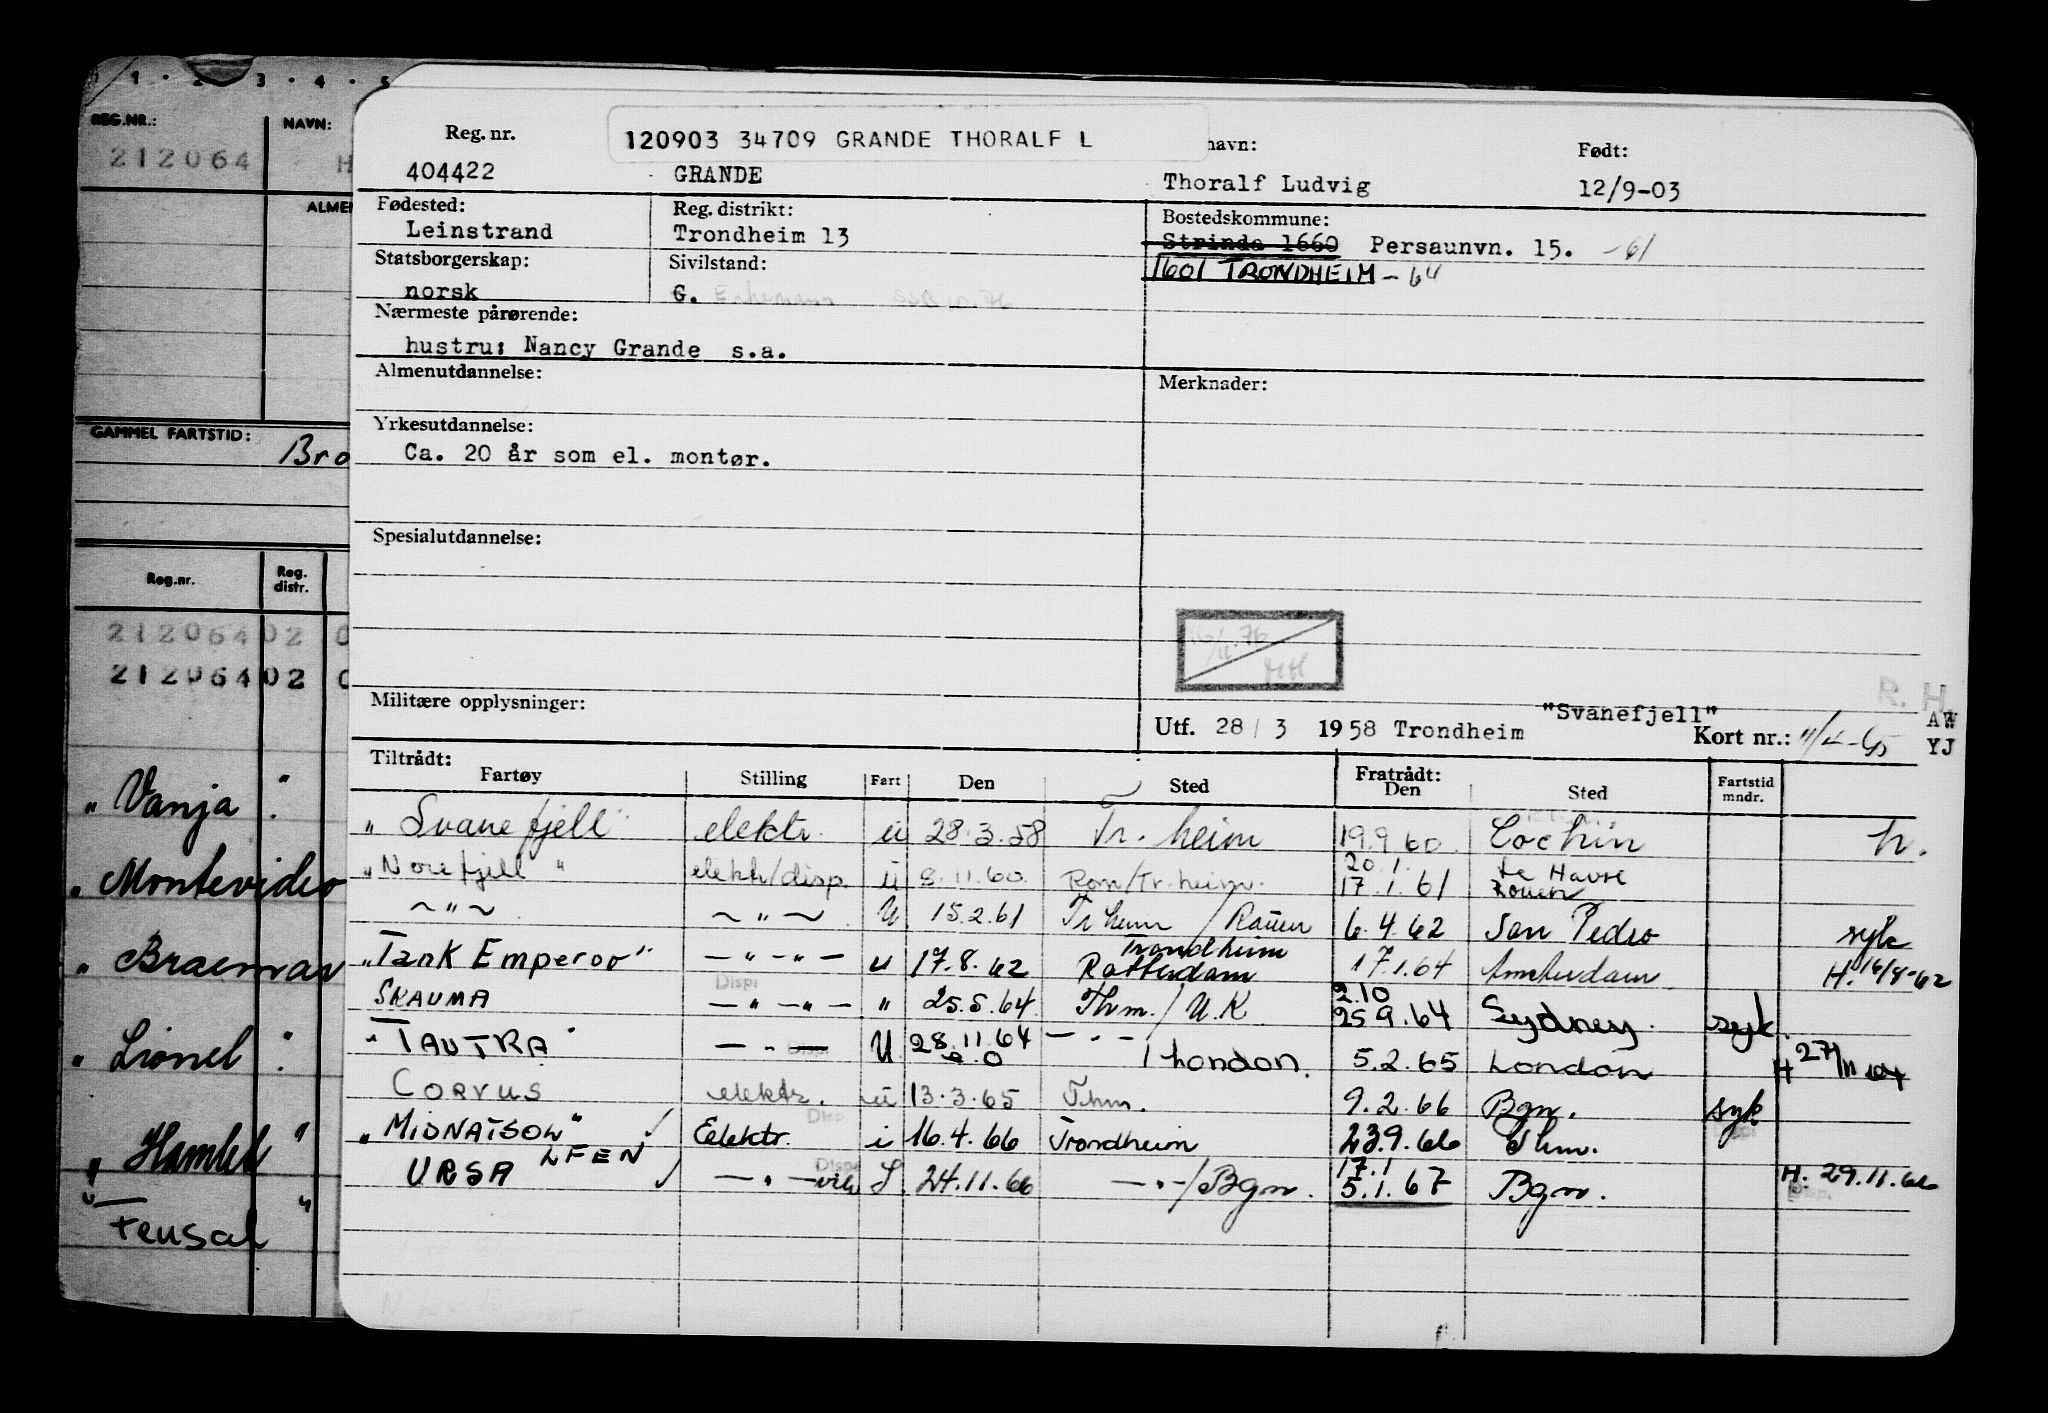 1 · 2 · 3 · 4 · 5
REG.NR.:
NAVN:
212064
H
ALMEN
GAMMEL FARTSTID:
Bro
Reg.nr.
Reg. distr.
212064 02 0
212064 02 0
"Vanja"
"Montevideo
"Braemar
"Lionel"
"Hamlet"
"Fensal"
Reg. nr.
120903 34709 GRANDE THORALF L
navn:
Født:
404422
GRANDE
Thoralf Ludvig
12/9-03
Fødested:
Reg. distrikt:
Bostedskommune:
Leinstrand
Trondheim 13
Strinda 1660 Persaunvn. 15. -61
Statsborgerskap:
Sivilstand:
1601 TRONDHEIM - 64
norsk
G. Enkemann
Nærmeste pårørende:
hustru: Nancy Grande s.a.
Almenutdannelse:
Merknader:
Yrkesutdannelse:
Ca. 20 år som el. montør.
Spesialutdannelse:
R. H.
Militære opplysninger:
"Svanefjell"
AW
Utf. 28 / 3 1958 Trondheim
Kort nr.:
YJ
Tiltrådt:
Fratrådt:
Fartøy Stilling Fart Den Sted Den Sted Fartstid mndr.
"Svanefjell" elektr. u 28.3.58 Tr.heim 19.9.60 Cochin h.
"Norefjell" elektr/disp. u 8.11.60 Ron/Tr.heim. 20.1. 17.1.61 Le Havre Rouen
~ " ~ ~ " ~ U 15.2.61 Tr heim / Rouen 6.4.62 San Pedro syk
"Tank Emperor" — " — " — u 17.8.62 Trondheim Rotterdam 17.1.64 Amsterdam H. 16/8-62
SKAUMA — " — " — Disp " 25.5.64 Thm. / U.K 2.10 25.9.64 Sydney. syk.
"TAUTRA" — " — U 28.11.64 — " — / London. 5.2.65 London H 27/11 64
CORVUS elektr. u 13.3.65 Thm. 9.2.66 Bgn. syk
"MIDNATSOL" Elektr. Disp i 16.4.66 Trondheim 23.9.66 Thm.
URSA LFEN — " — Disp S. 24.11.66 — " — / Bgn. 17.1 5.1.67 Bgn. H. 29.11.66